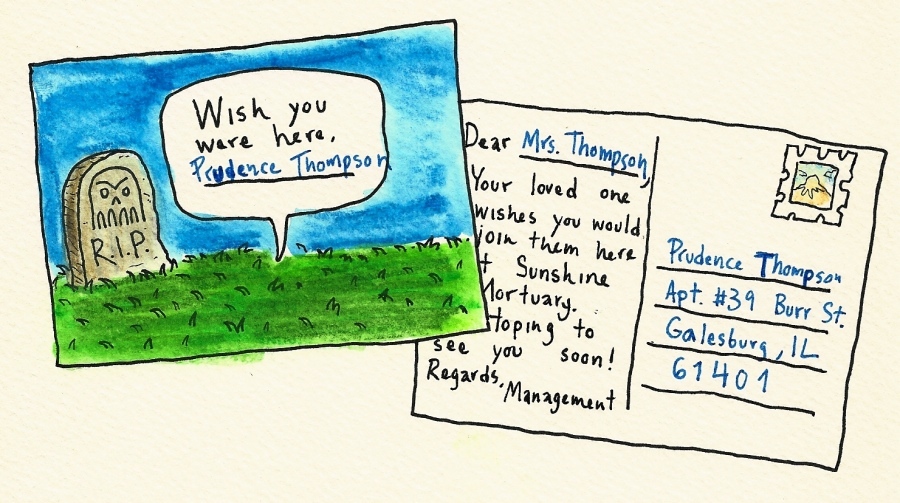 Wish you
were here,
Prudence Thompson
R.I.P.
Dear Mrs. Thompson,
Your loved one
wishes you would
join them here
t Sunshine
Mortuary.
Hoping to
see you soon!
Regards,
Management
Prudence Thompson
Apt. #39 Burr St.
Galesburg, IL
61401